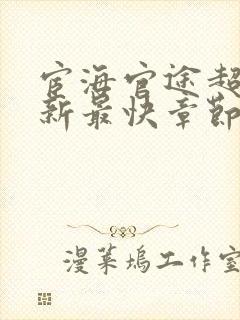 宦海官途超
新最快章節
漫葉塢工作室